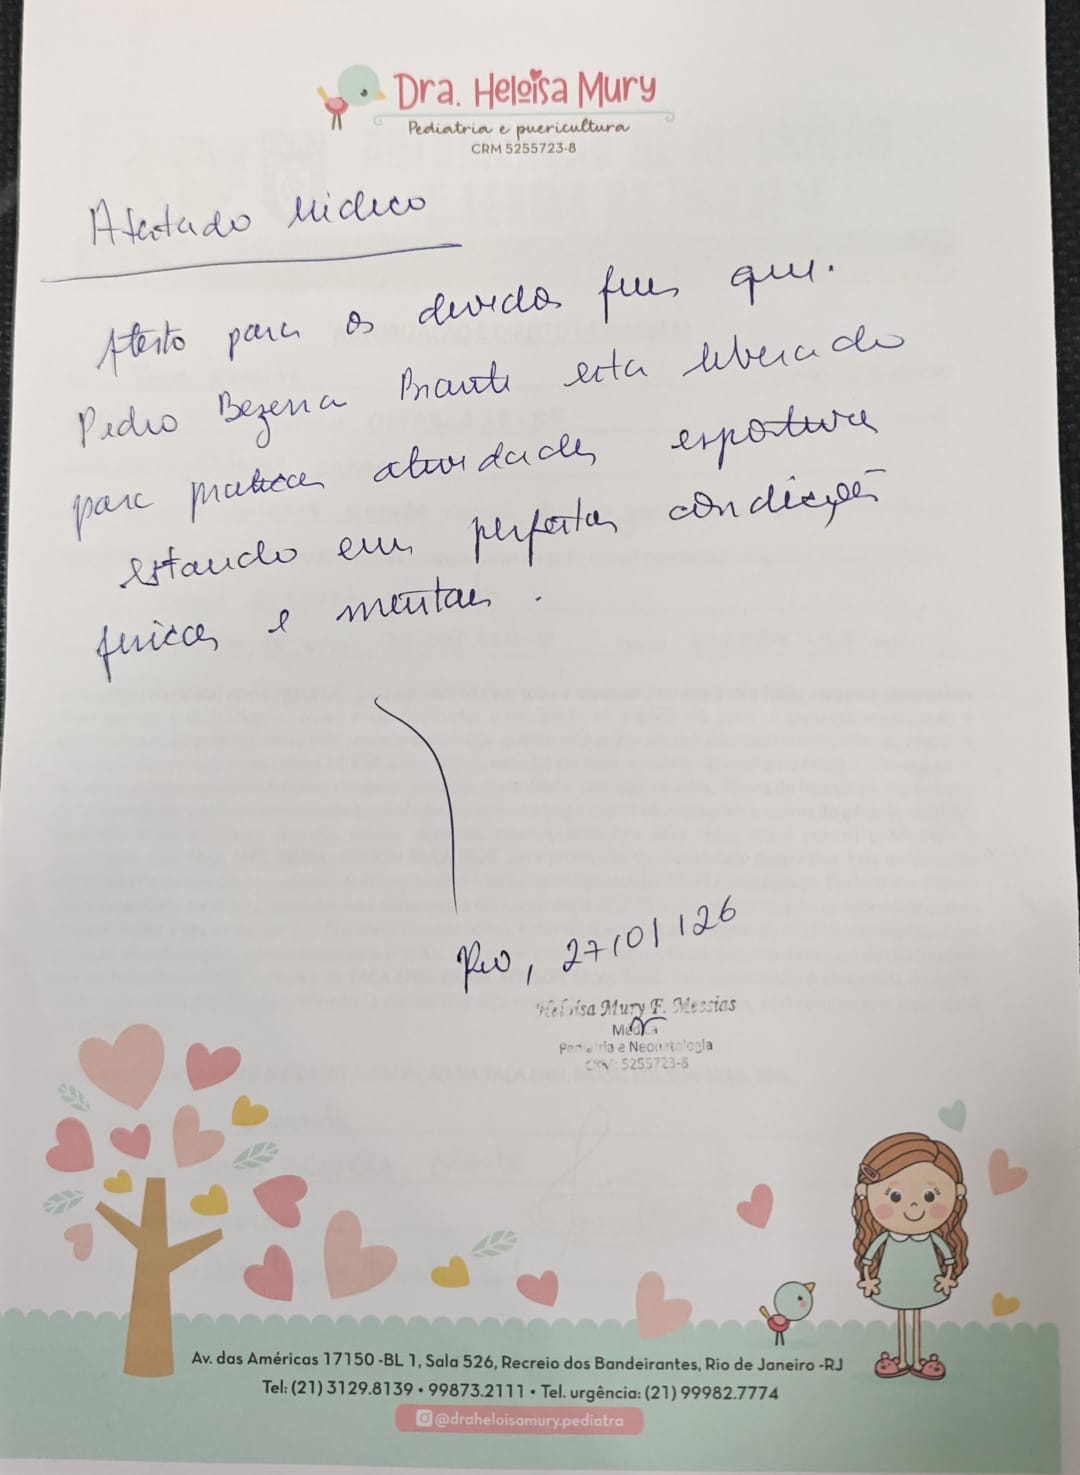 Dra. Heloisa Mury
Pediatria e puericultura
CRM 5255723-8
Atestado Médico
Atesto para os devidos fins que.
Pedro Bezerra Brante esta liberado
para praticar atividades esportivas
estando em perfeitas condições
físicas e mentais.
Rio, 27/01/26
Heloisa Mury F. Messias
Médica
Pediatria e Neonatologia
CRM: 5255723-8
Av. das Américas 17150 -BL 1, Sala 526, Recreio dos Bandeirantes, Rio de Janeiro -RJ
Tel: (21) 3129.8139 • 99873.2111 • Tel. urgência: (21) 99982.7774
@draheloisamury.pediatra